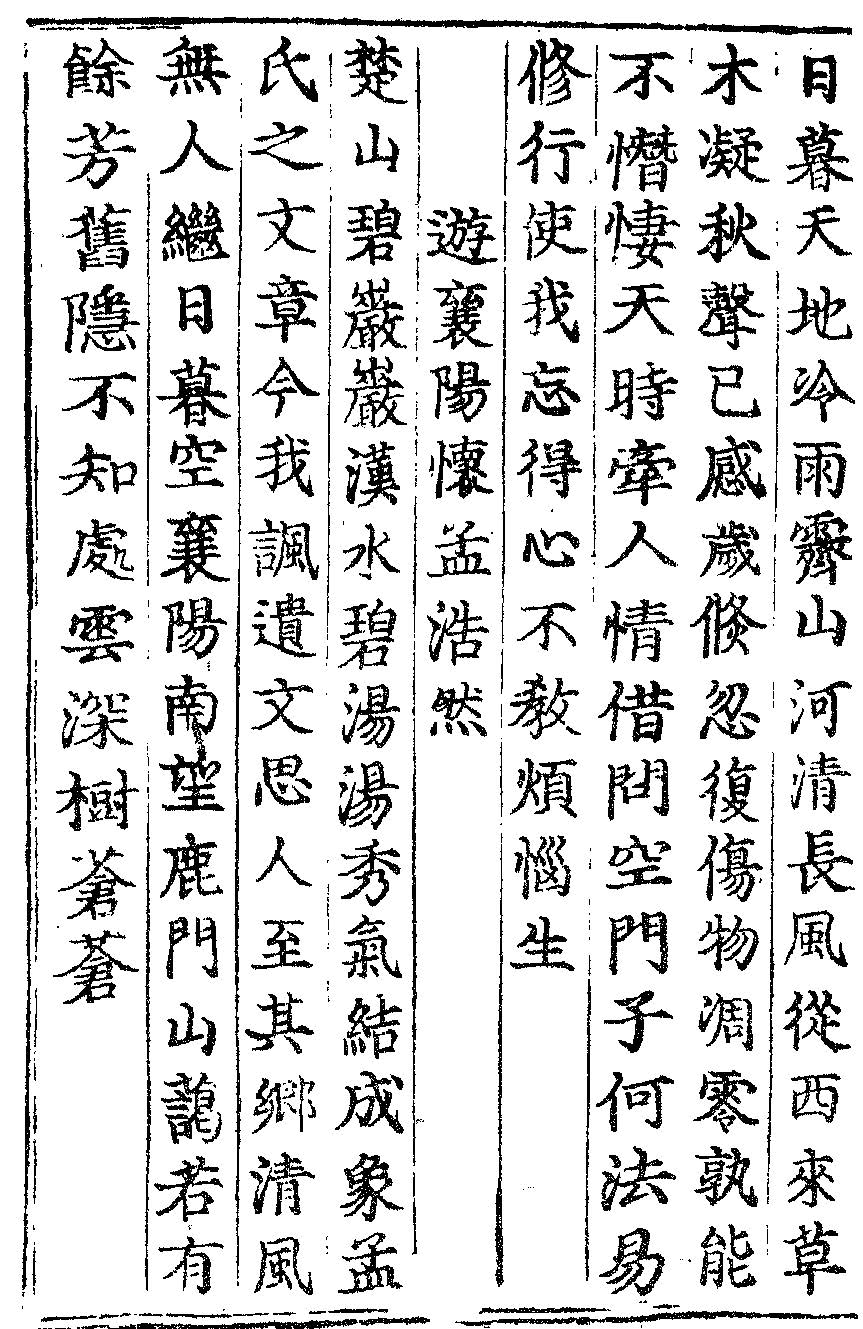 日暮天地冷雨霽山河清長風從西來草
木凝秋聲已感歲倐忽復傷物凋零孰能
不憯悽天時牽人情借問空門子何法易
修行使我忘得心不敎煩惱生
遊襄陽懷孟浩然
楚山碧巖巖漢水碧湯湯秀氣結成象孟
氏之文章今我諷遺文思人至其鄉清風
無人繼日暮空襄陽南望鹿門山藹若有
餘芳舊隱不知處雲深樹蒼蒼